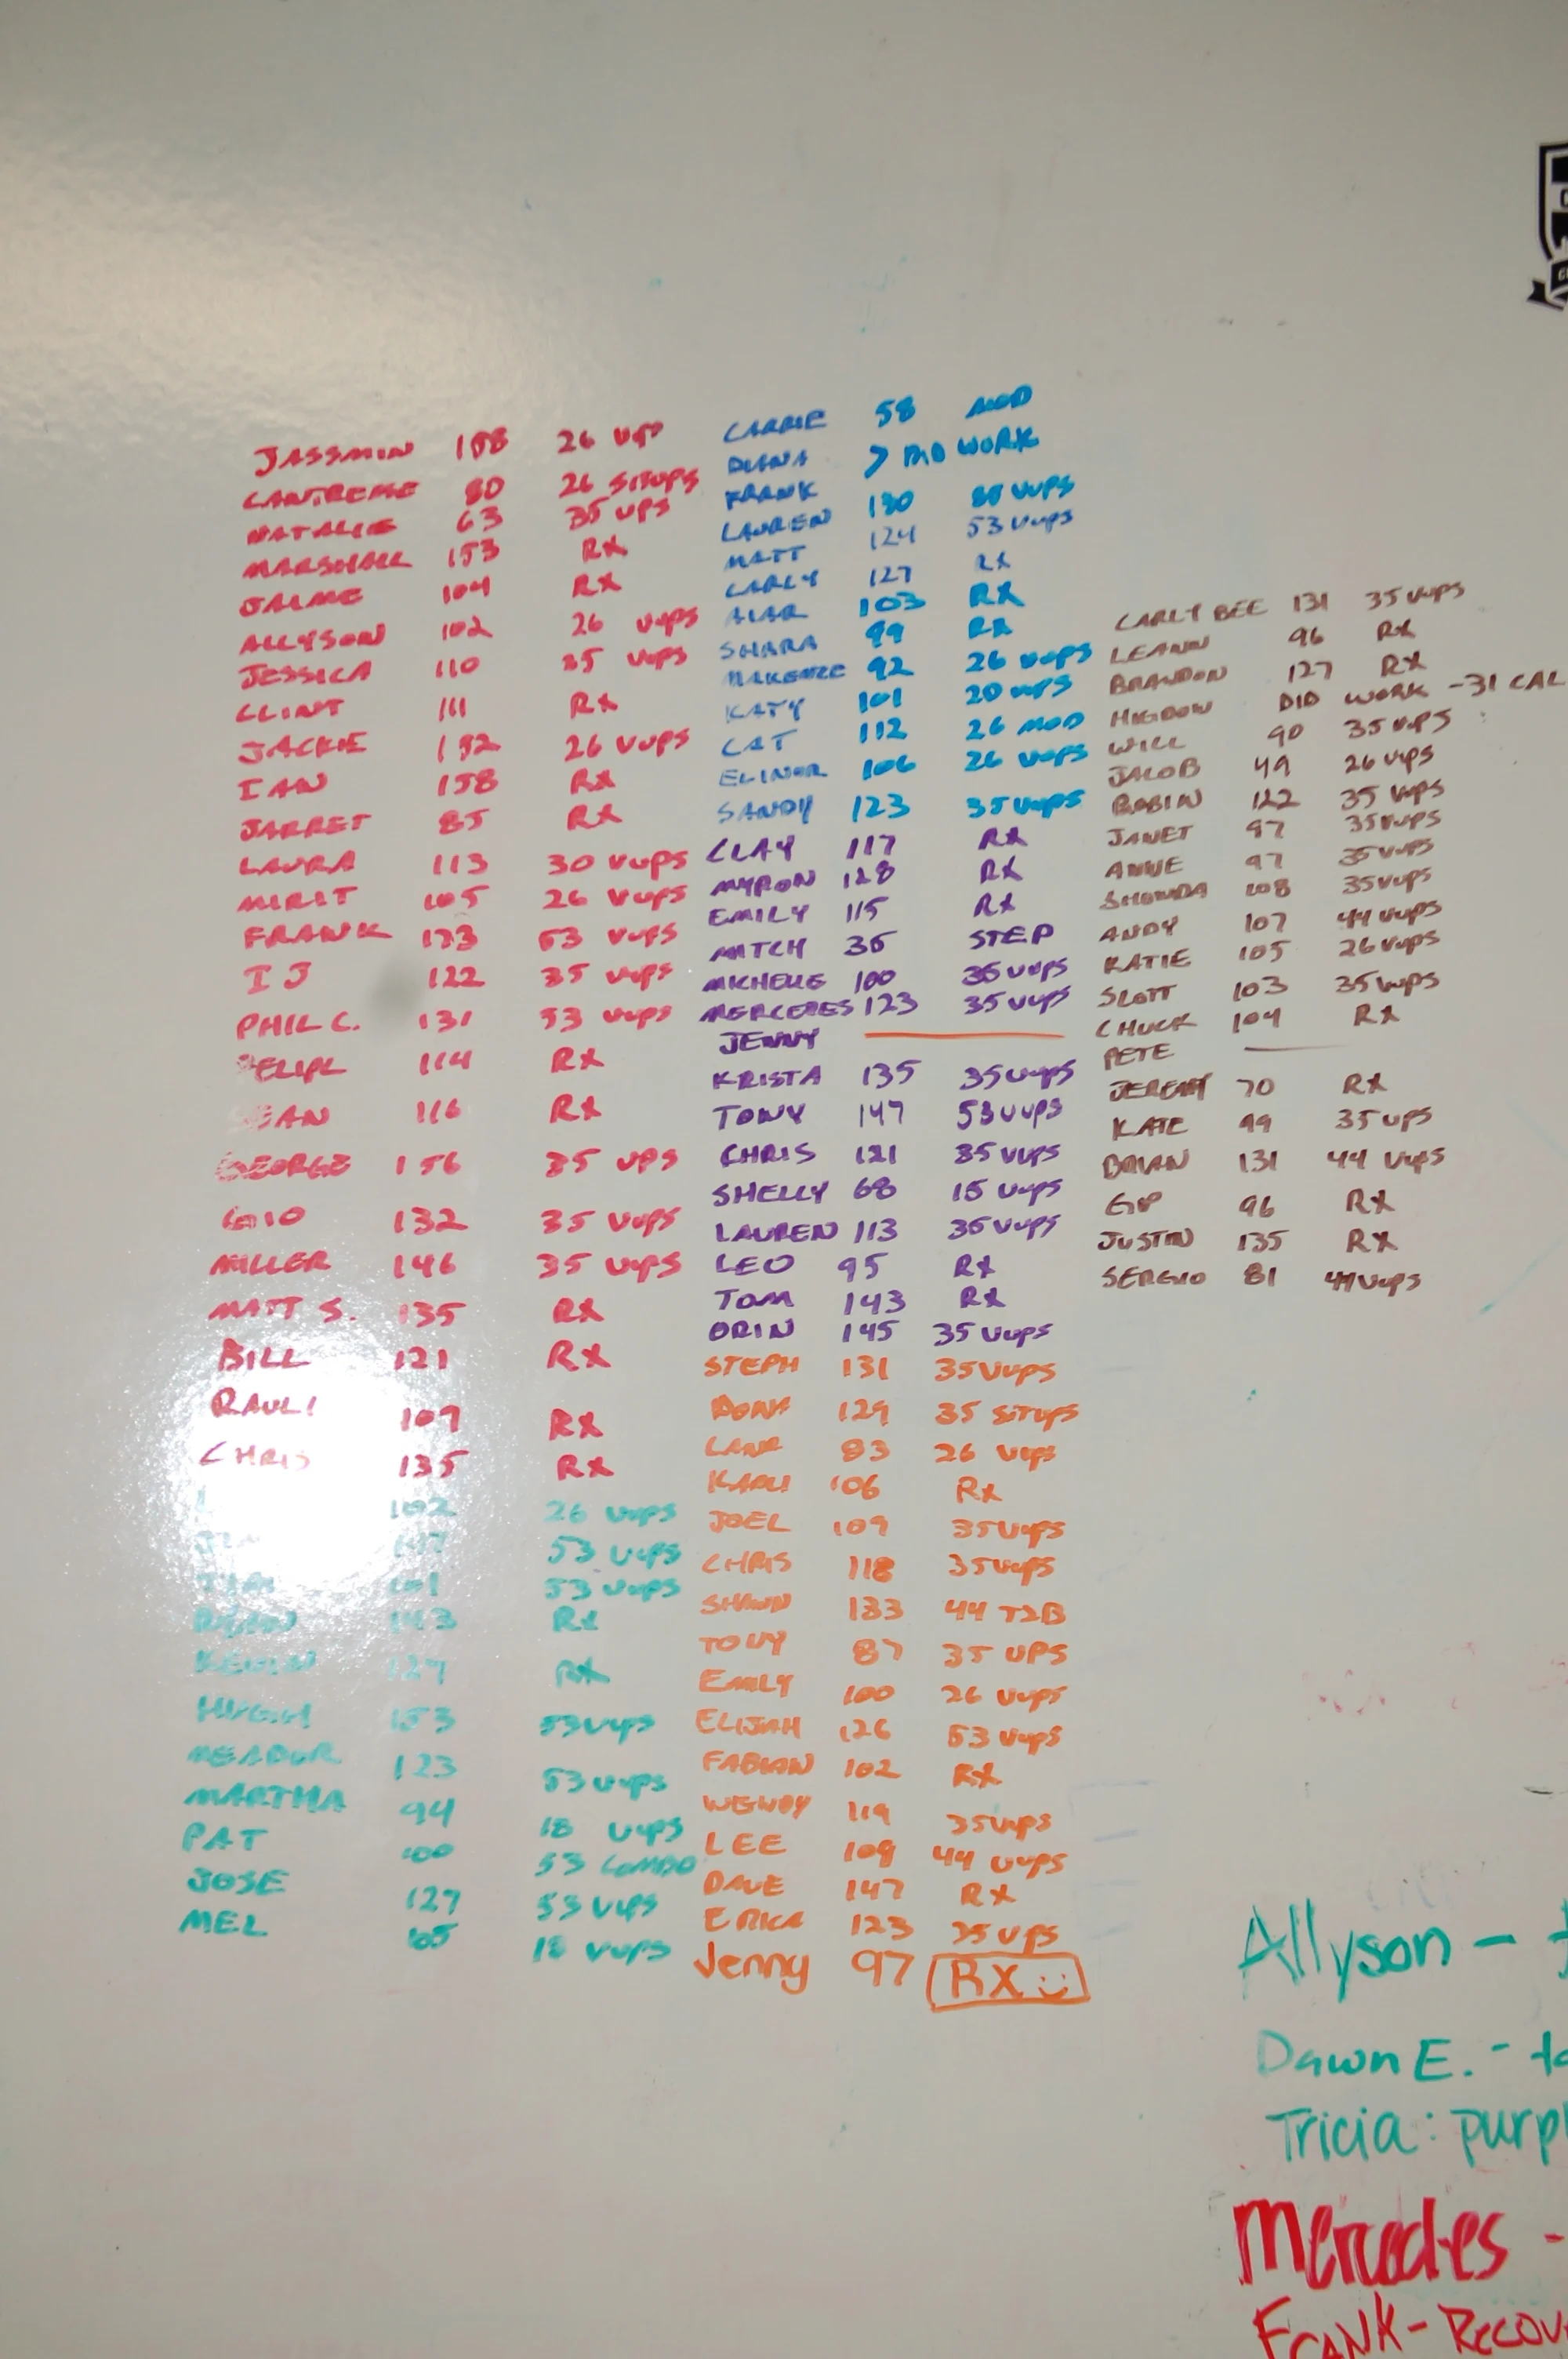 JASSMIN 26 VUP
80 26 SITUPS
NATALIE 63 35 UPS
MARSHALL 153 RX
JAIME 104 RX
ALLYSON 102 26 VUPS
JESSICA 110 35 VUPS
CLINT 111 RX
JACKIE 132 26 VUPS
IAN 158 RX
JARRET 85 RX
LAURA 113 30 VUPS
MIRIT 105 26 VUPS
FRANK 133 53 VUPS
IJ 122 35 VUPS
PHIL C. 131 53 VUPS
114 RX
116 RX
GEORGE 156 35 UPS
GIO 132 35 VUPS
MILLER 146 35 VUPS
MATT S. 135 RX
BILL 121 RX
RAULI 109 RX
CHRIS 135 RX
102 26 VUPS
53 VUPS
53 VUPS
143 RX
KEVIN 127 RX
HUGH 153 53 VUPS
MEADOR 123 53 VUPS
MARTHA 94 18 VUPS
PAT 100 53 COMBO
JOSE 127 53 VUPS
MEL 105 18 VUPS
CARRIE 58 MOD
DIANA > DID WORK
FRANK
LAUREN 130 VUPS
MATT 124 53 VUPS
CARLY 127 RX
103 RX
SHARA 99 RX
MAKENZIE 92 26 VUPS
KATY 101 20 VUPS
CAT 112 26 MOD
ELINOR 106 26 VUPS
SANDY 123 35 VUPS
CLAY 117 RX
MYRON 128 RX
EMILY 115 RX
MITCH 36 STEP
MICHELLE 100 35 VUPS
MERCEDES 123 35 VUPS
JENNY
KRISTA 135 35 VUPS
TONY 147 53 VUPS
CHRIS 121 35 VUPS
SHELLY 68 15 VUPS
LAUREN 113 35 VUPS
LEO 95 RX
TOM 143 RX
ORIN 145 35 VUPS
STEPH 131 35 VUPS
129 35 SITUPS
83 26 VUPS
KARLI 106 RX
JOEL 109 35 VUPS
CHRIS 118 35 VUPS
SHAWN 133 44 T2B
TONY 87 35 UPS
EMILY 100 26 VUPS
ELIJAH 126 53 VUPS
FABIAN 102 RX
WENDY 119 35 VUPS
LEE 109 44 VUPS
DAVE 147 RX
ERICA 123 35 UPS
Jenny 97 RX
CARLY BEE 131 35 VUPS
LEANN 96 RX
BRANDON 127 RX
HIGDON DID WORK -31 CAL
WILL 90 35 VUPS
JACOB 49 26 VUPS
ROBIN 122 35 VUPS
JANET 97 35 VUPS
ANNE 97 35 VUPS
SHONDA 108 35 VUPS
ANDY 107 44 VUPS
KATIE 105 26 VUPS
SCOTT 103 35 VUPS
CHUCK 104 RX
PETE —
JEREMY 70 RX
KATE 99 35 UPS
BRIAN 131 44 VUPS
GIP 96 RX
JUSTIN 135 RX
SERGIO 81 44 VUPS
Allyson -
Dawn E. -
Tricia:
Mercedes -
FRANK -